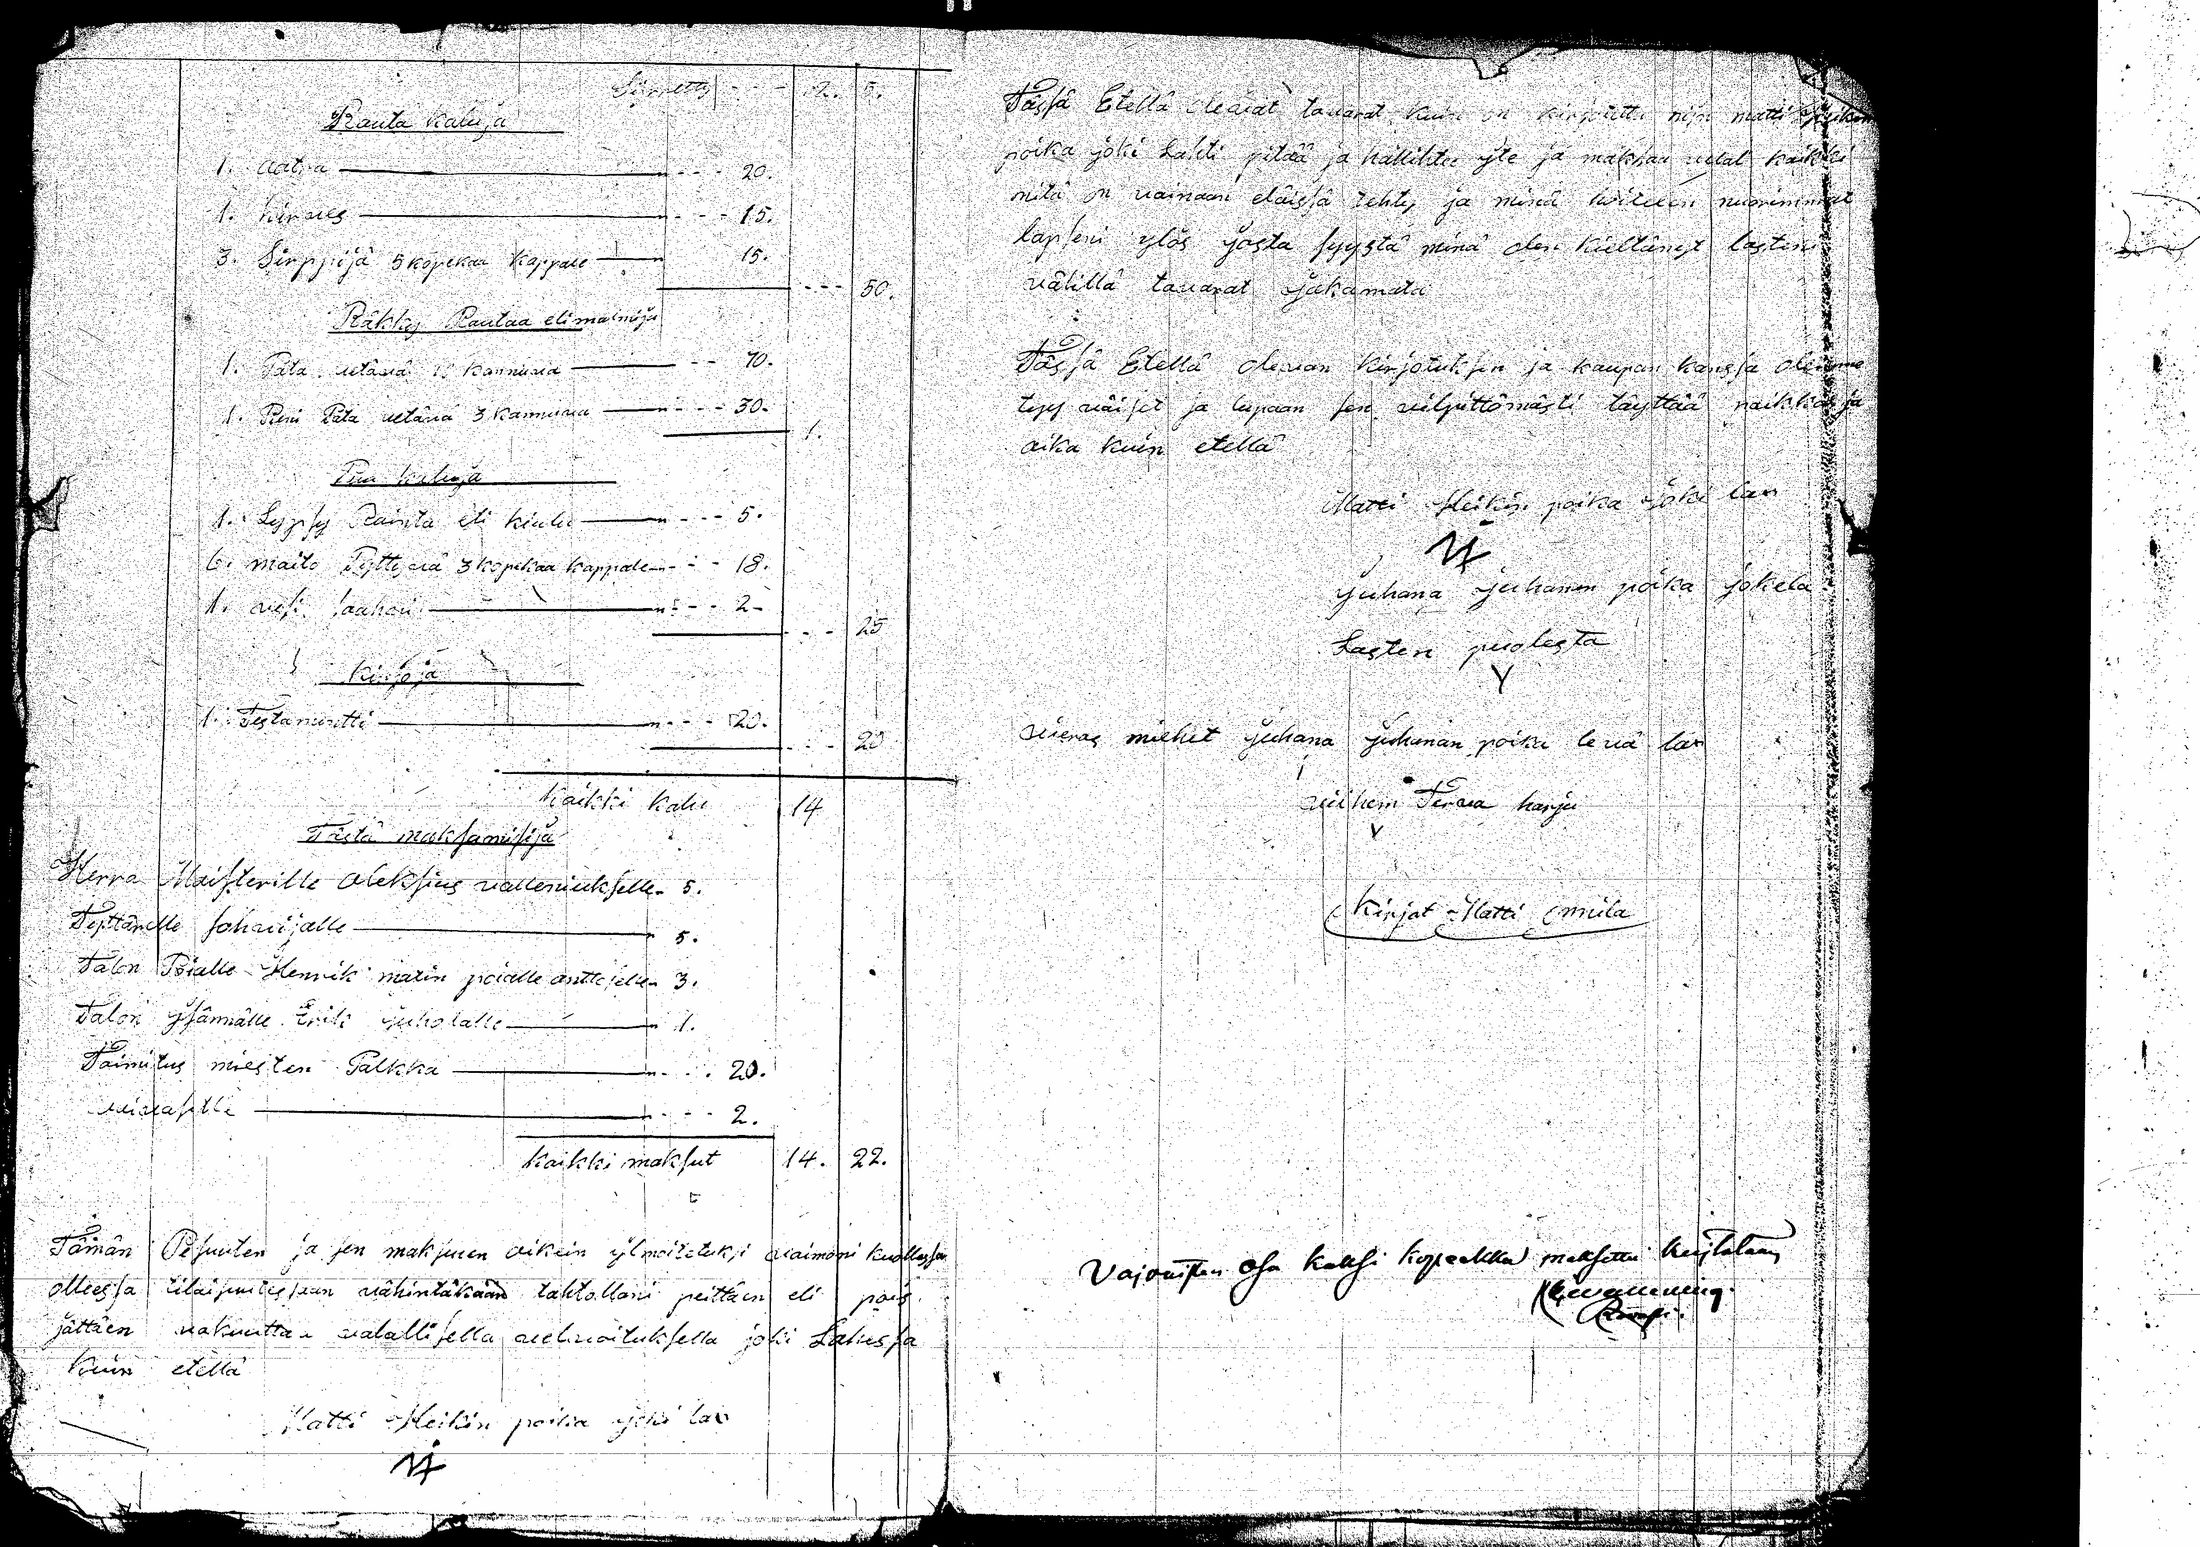 Siirretty - - - 12. 5.
Rauta kaluja
1. aatra - - - 20.
1. kirves - - - 15.
3. Sirppijä 5 kopekaa kappale 15.
- - - 50.
Räkky Rautaa eli malmija
1. Pata vetävä kannuva - - 70.
1. Pieni Pata vetävä 3 kannuva - - - 30.
1.
Puu kaluja
1. Lypsy Rainta eli kiulu - - - 5.
6. maito Pyttyjvä 3 kopekaa kappale - - - 18.
1. vesi saahvi - - - 2 -
- - - 25
Kirjoja
1. Testamentti - - - 20.
- - - 20
Kaikki kalu 14
Tästä maksamisija
Herra Maisterille Aleksius valleniukselle 5.
Tyttärelle 5.
Talon Poialle Henrik matin poialle anttoselle 3.
Talon ysännälle Erik juholalle 1.
Toimitus miesten Palkka - - . 20.
vaivasille - - - 2.
Kaikki maksut 14. 22.
Tämän Pesuuten ja sen maksuen oikein ylmoitetuksi vaimoni kuollessa
ollessa tilaisuutessaan vähintäkään tahtollani peittäen eli pois
jättäen vakuuttan valallisella velvoituksella joki Lahessa
kuin etellä
Matti Heikin poika joki lax
Tässä Etellä olevat tavarat kuin on kirjotettu niin matti Heikin
poika joki Lahti pitää ja hallihtee yte ja maksaa velat kaikki
nitä on vainaan eläissä tehty ja minä nuorimmat
lapseni ylös josta syystä minä olen kieltänyt lasteni
välillä tavarat jakamata
Tässä Etellä olevan kirjotuksen ja kaupan kanssa olemme
tyyväiset ja lupaan sen vilpittömästi täyttää paikka ja
aika kuin etellä
Matti Heikin poika joki lax
Juhana Juhanan poika jokela
Lasten puolesta
vieras miehet Juhana Juhanan poika levä lax
vilhem Terva harju
Kirjat Matti Emila
Vajvaisten osa kaksi kopeekkaa maksettu